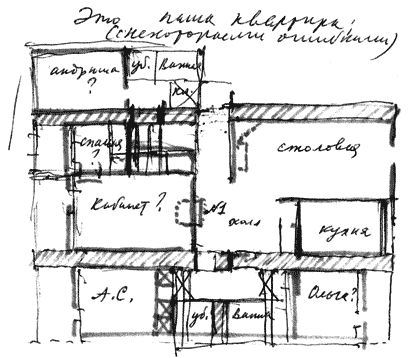 Это наша квартира!
(с некоторыми ошибками)
андрюша
?
уб.
ванна
кл.
спальня
?
столовая
Кабинет?
№1
холл
кухня
А.С.
уб.
ванна
Ольга?